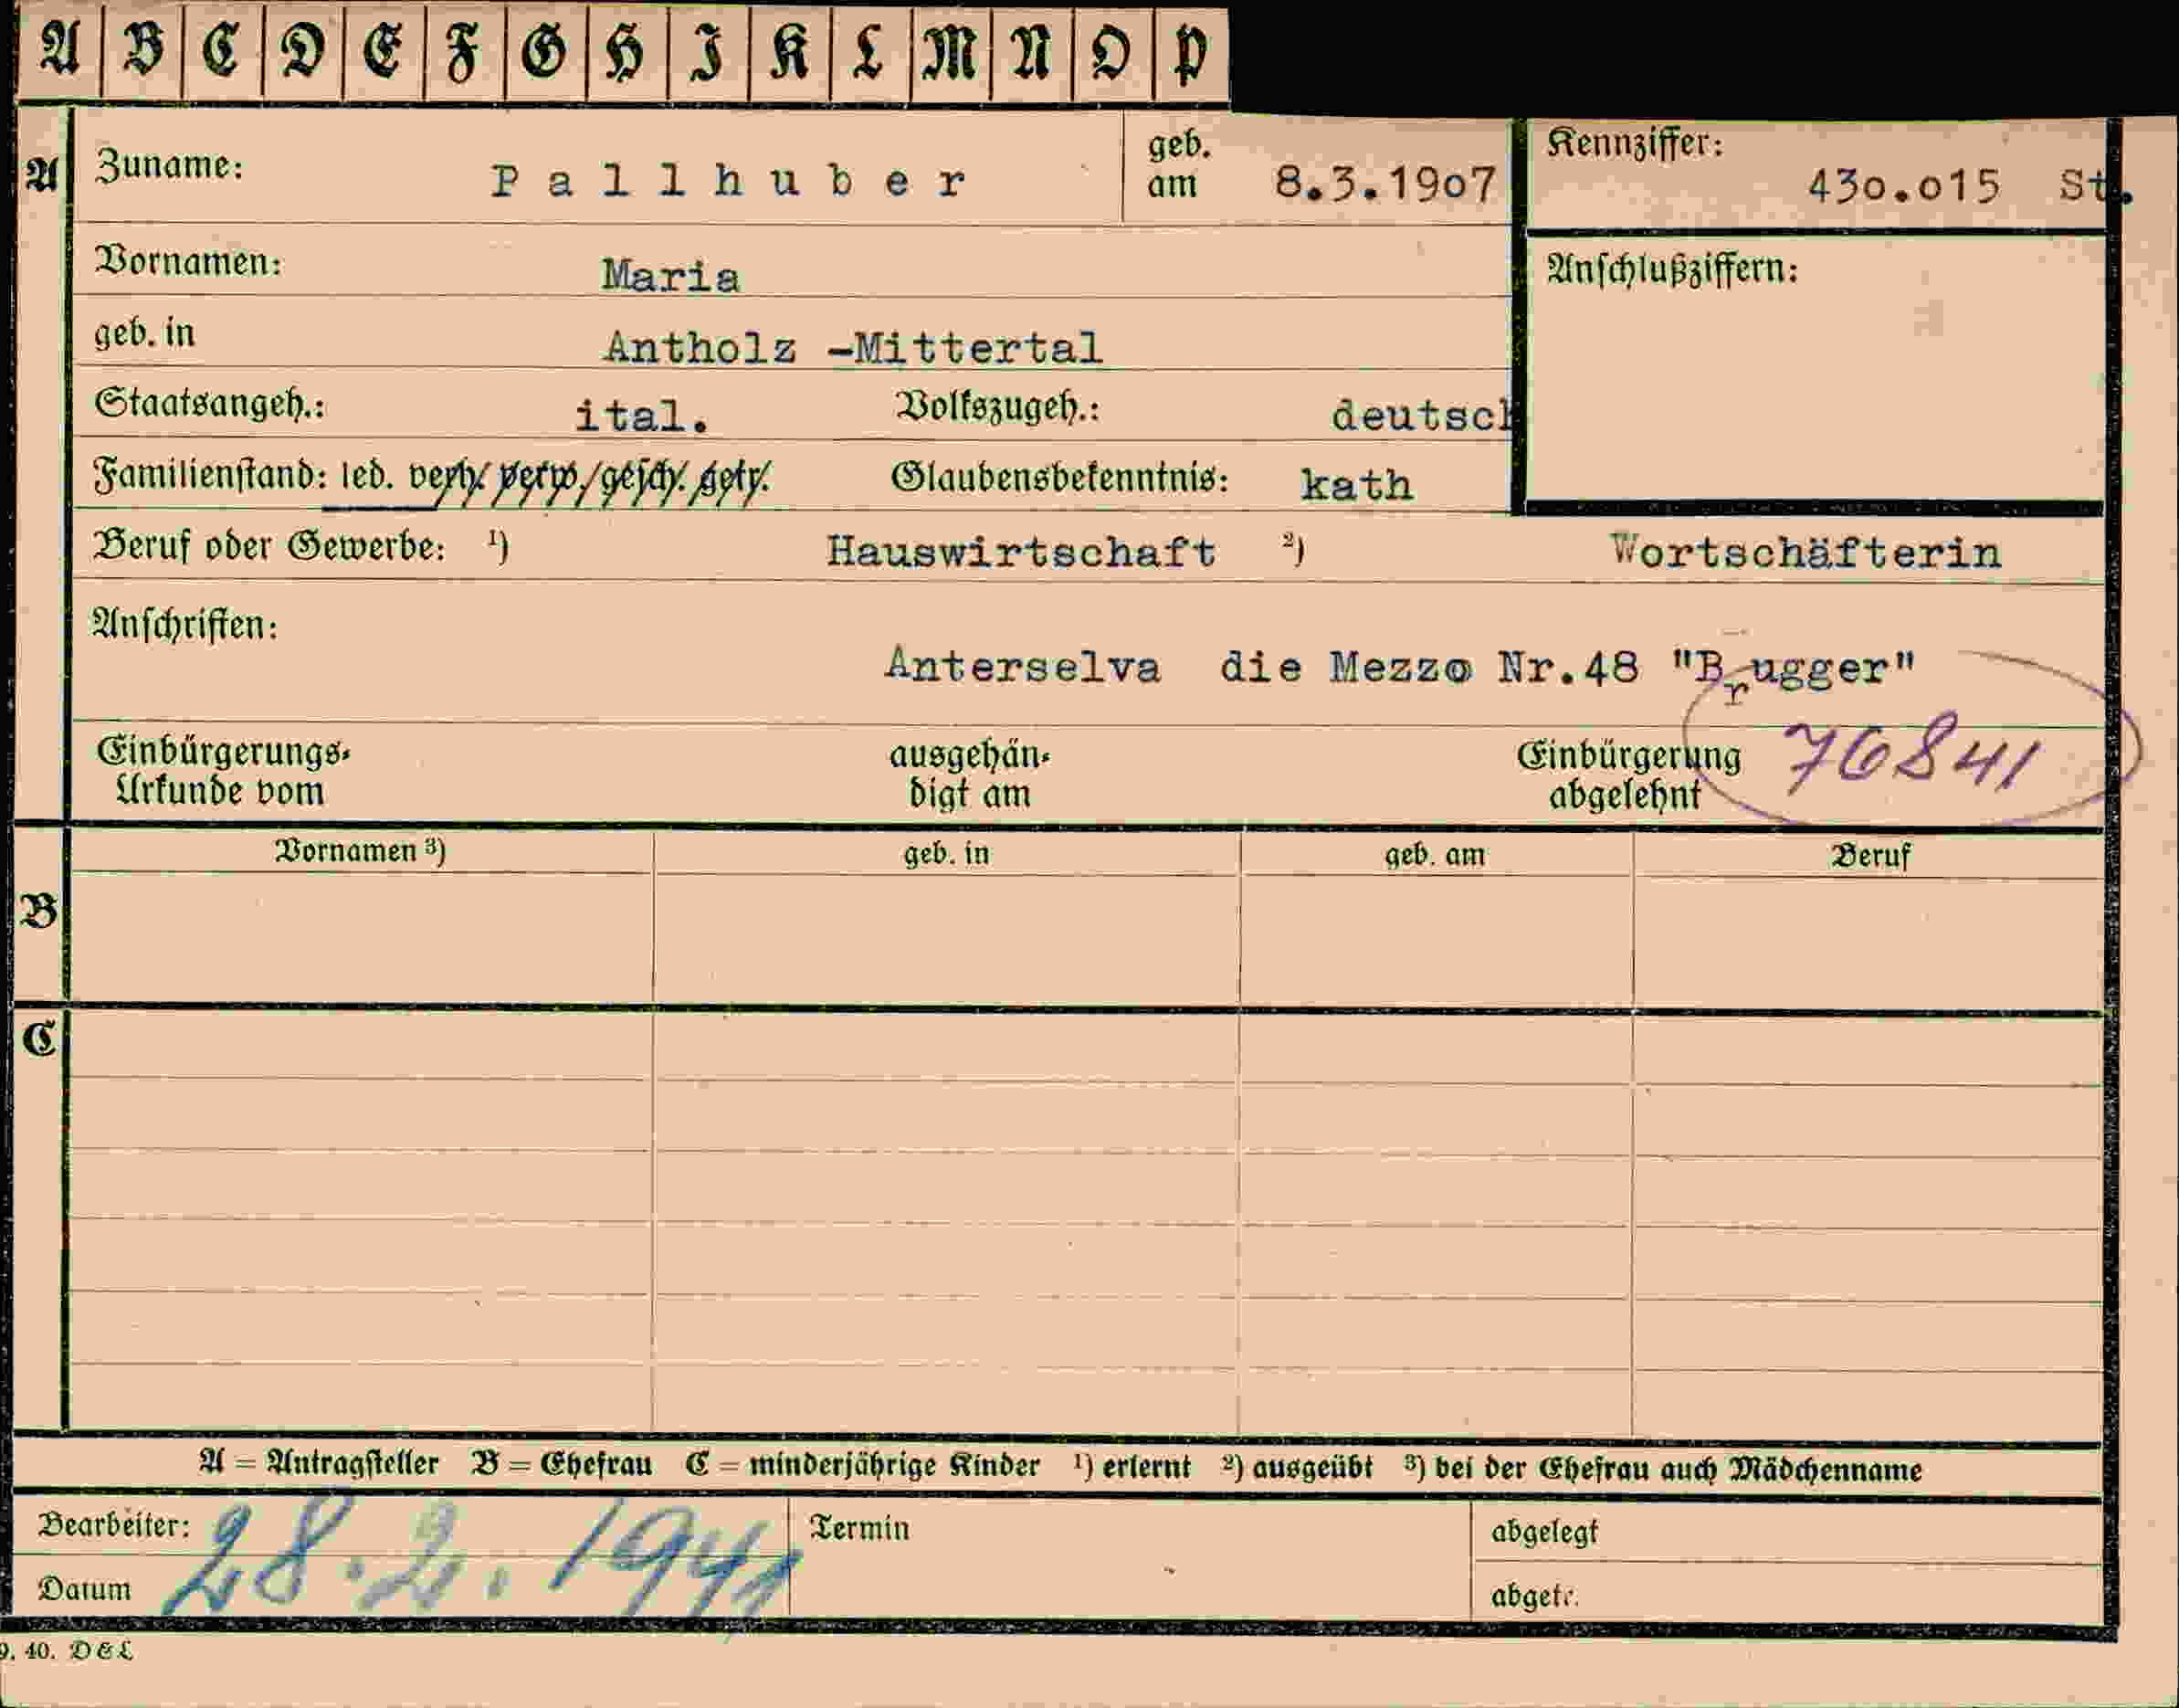 A B C D E F G H I K L M N O P
A Zuname: Pallhuber geb. am 8.3.19o7 Kennziffer: 43o.o15 St.
Vornamen: Maria Anschlußziffern:
geb. in Antholz -Mittertal
Staatsangeh.: ital. Volkszugeh.: deutsch
Familienstand: led. verh. verw./gesch. getr. Glaubensbekenntnis: kath
Beruf oder Gewerbe: 1) Hauswirtschaft 2) Wortschäfterin
Anschriften:
Anterselva die Mezzo Nr.48 "Brugger"
Einbürgerungs- ausgehän- Einbürgerung 76841
Urkunde vom digt am abgelehnt
Vornamen 3) geb. in geb. am Beruf
B
C
A = Antragsteller B = Ehefrau C = minderjährige Kinder 1) erlernt 2) ausgeübt 3) bei der Ehefrau auch Mädchenname
Bearbeiter: Termin abgelegt
Datum 28.2.1941 abgetr.
9. 40. D&L